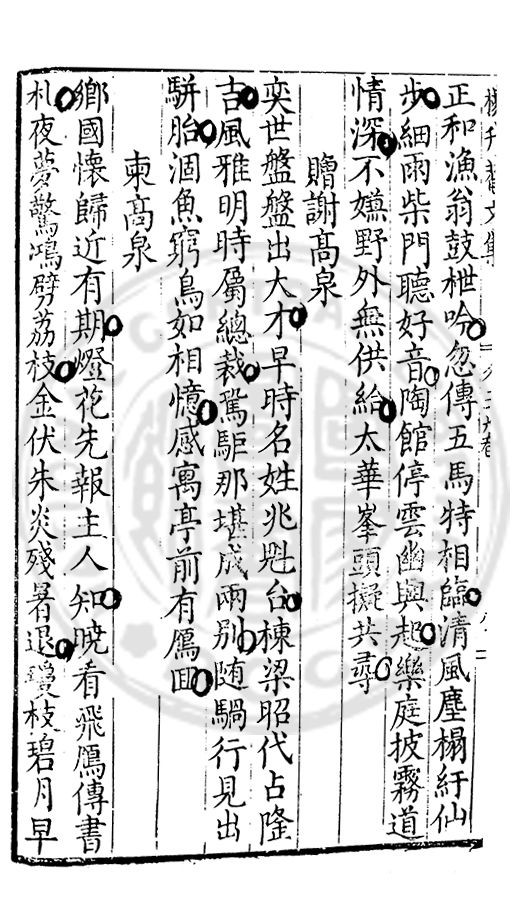 正和漁翁鼓枻吟忽傳五馬特相臨清風塵榻紆仙
步細雨柴門聽好音陶館停雲幽興起樂庭披霧道
情深不嫌野外無供給太華峯頭擬共尋
贈謝髙泉
奕世盤盤出大才早時名姓兆魁台棟梁昭代占隆
吉風雅明時屬總裁駕駏那堪成兩别随騧行見出
駢胎涸魚窮鳥如相憶感寓亭前有鴈回
柬髙泉
鄉國懷歸近有期燈花先報主人知暁看飛鴈傳書
札夜夢驚鴻劈荔枝金伏朱炎殘暑退瓊枝碧月早